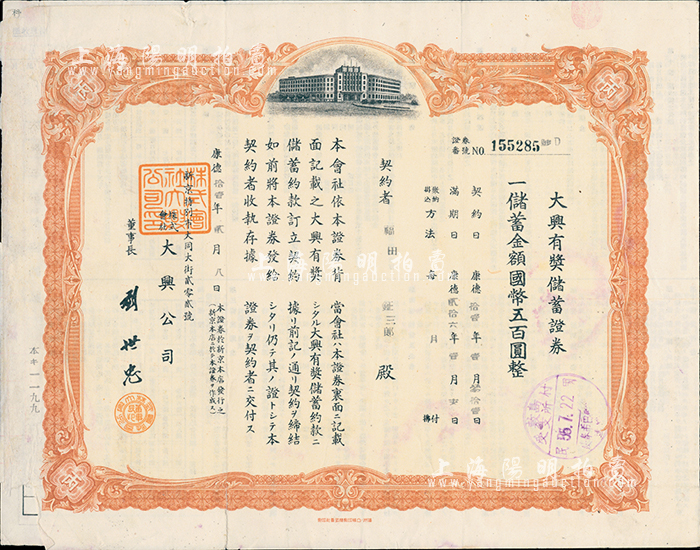 大興有獎儲蓄證券
一儲蓄金額國幣五百圓整
證券
番號
NO. 155285
契約日 康德拾壹年壹月 日
滿期日 康德貳拾六年壹月 日
繳納
拂込
方法 每 月 付拂
契約者 福田 三郎 殿
本會社依本證券背
面記載之大興有獎
儲蓄約款訂立契約
如前將本證券發給
契約者收執存據
當會社ハ本證券裏面ニ記載
シタル大興有獎儲蓄約款ニ
據リ前記ノ通リ契約ヲ締結
シタリ仍テ其ノ證トシテ本
證券ヲ契約者ニ交付ス
康德拾壹年貳月八日
本證券於新京本店發行之
(新京本店ニ於テ本證券ヲ作成ス)
新京特別市大同大街貳零貳號
株式
會社
大興公司
董事長
株式會社大興公司
丙
丙
丙
丙
55.7.22
上海陽明拍賣
yangmingauction.com
上海陽明拍賣
www.yangmingauction.com